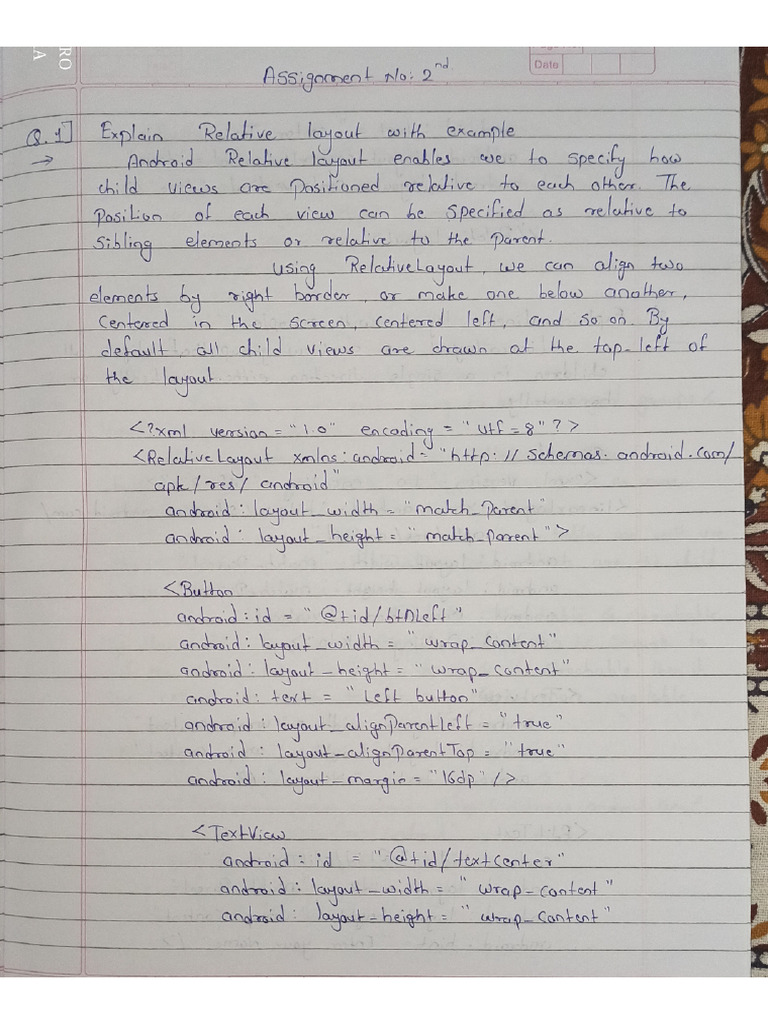 RO
LA
Date
Assignment No: 2nd
Q.1] Explain Relative layout with example
→ Android Relative layout enables we to specify how
child views are positioned relative to each other. The
Position of each view can be specified as relative to
sibling elements or relative to the parent.
using RelativeLayout, we can align two
elements by right border, or make one below another,
centered in the screen, centered left, and so on. By
default, all child views are drawn at the top-left of
the layout
<?xml version = "1.0" encoding = "utf = 8" ?>
<RelativeLayout xmlns:android = "http://schemas.android.com/
apk/res/android"
android: layout_width = "match_parent"
android: layout_height = "match_parent">
<Button
android:id = "@tid/btnLeft"
android: layout_width = "wrap_content"
android: layout_height = "wrap_content"
android: text = "Left button"
android: layout_alignParentLeft = "true"
android: layout_alignParentTop = "true"
android: layout_margin = "16dp" />
<TextView
android: id = "@tid/textCenter"
android: layout_width = "wrap_content"
android: layout_height = "wrap_content"